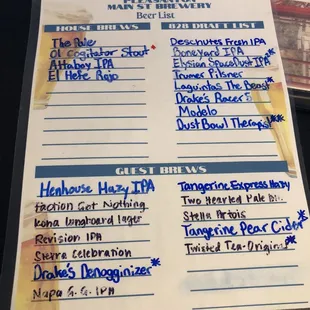 PLEASANTON
MAIN ST BREWERY
Beer List
HOUSE BREWS
The Pale
Ol Cogitator Stout
Attaboy IPA
El Hefe Rojo
828 DRAFT LIST
Deschutes Fresh IPA
Boneyard IPA
Elysian SpaceDust IPA*
Trumer Pilsner
Lagunitas The Beast*
Drake's Racer 5
Modelo
Dust Bowl Therapist**
GUEST BREWS
Henhouse Hazy IPA
Faction Got Nothing
Kona Longboard lager
Revision IPA
Sierra Celebration
Drake's Denogginizer*
Napa G.G. IPA
Tangerine Express Hazy
Two Hearted Pale
Stella Artois
Tangerine Pear Cider*
Twisted Tea-Original*